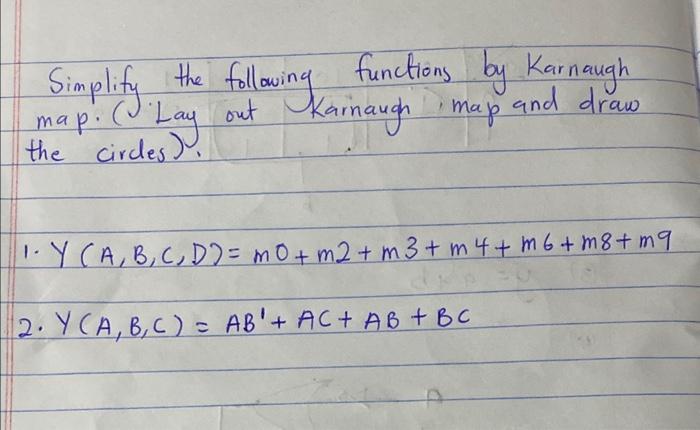 Simplify the following functions by Karnaugh
map. (Lay out Karnaugh map and draw
the circles).
1. Y (A, B, C, D) = m0 + m2 + m3 + m4 + m6 + m8 + m9
2. Y (A, B, C) = AB' + AC + AB + BC